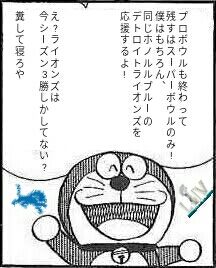 プロボウルも終わって
残すはスーパーボウルのみ！
僕はもちろん、
同じホノルルブルーの
デトロイトライオンズを
応援するよ！
え？ライオンズは
今シーズン３勝しかしてない？
糞して寝ろや